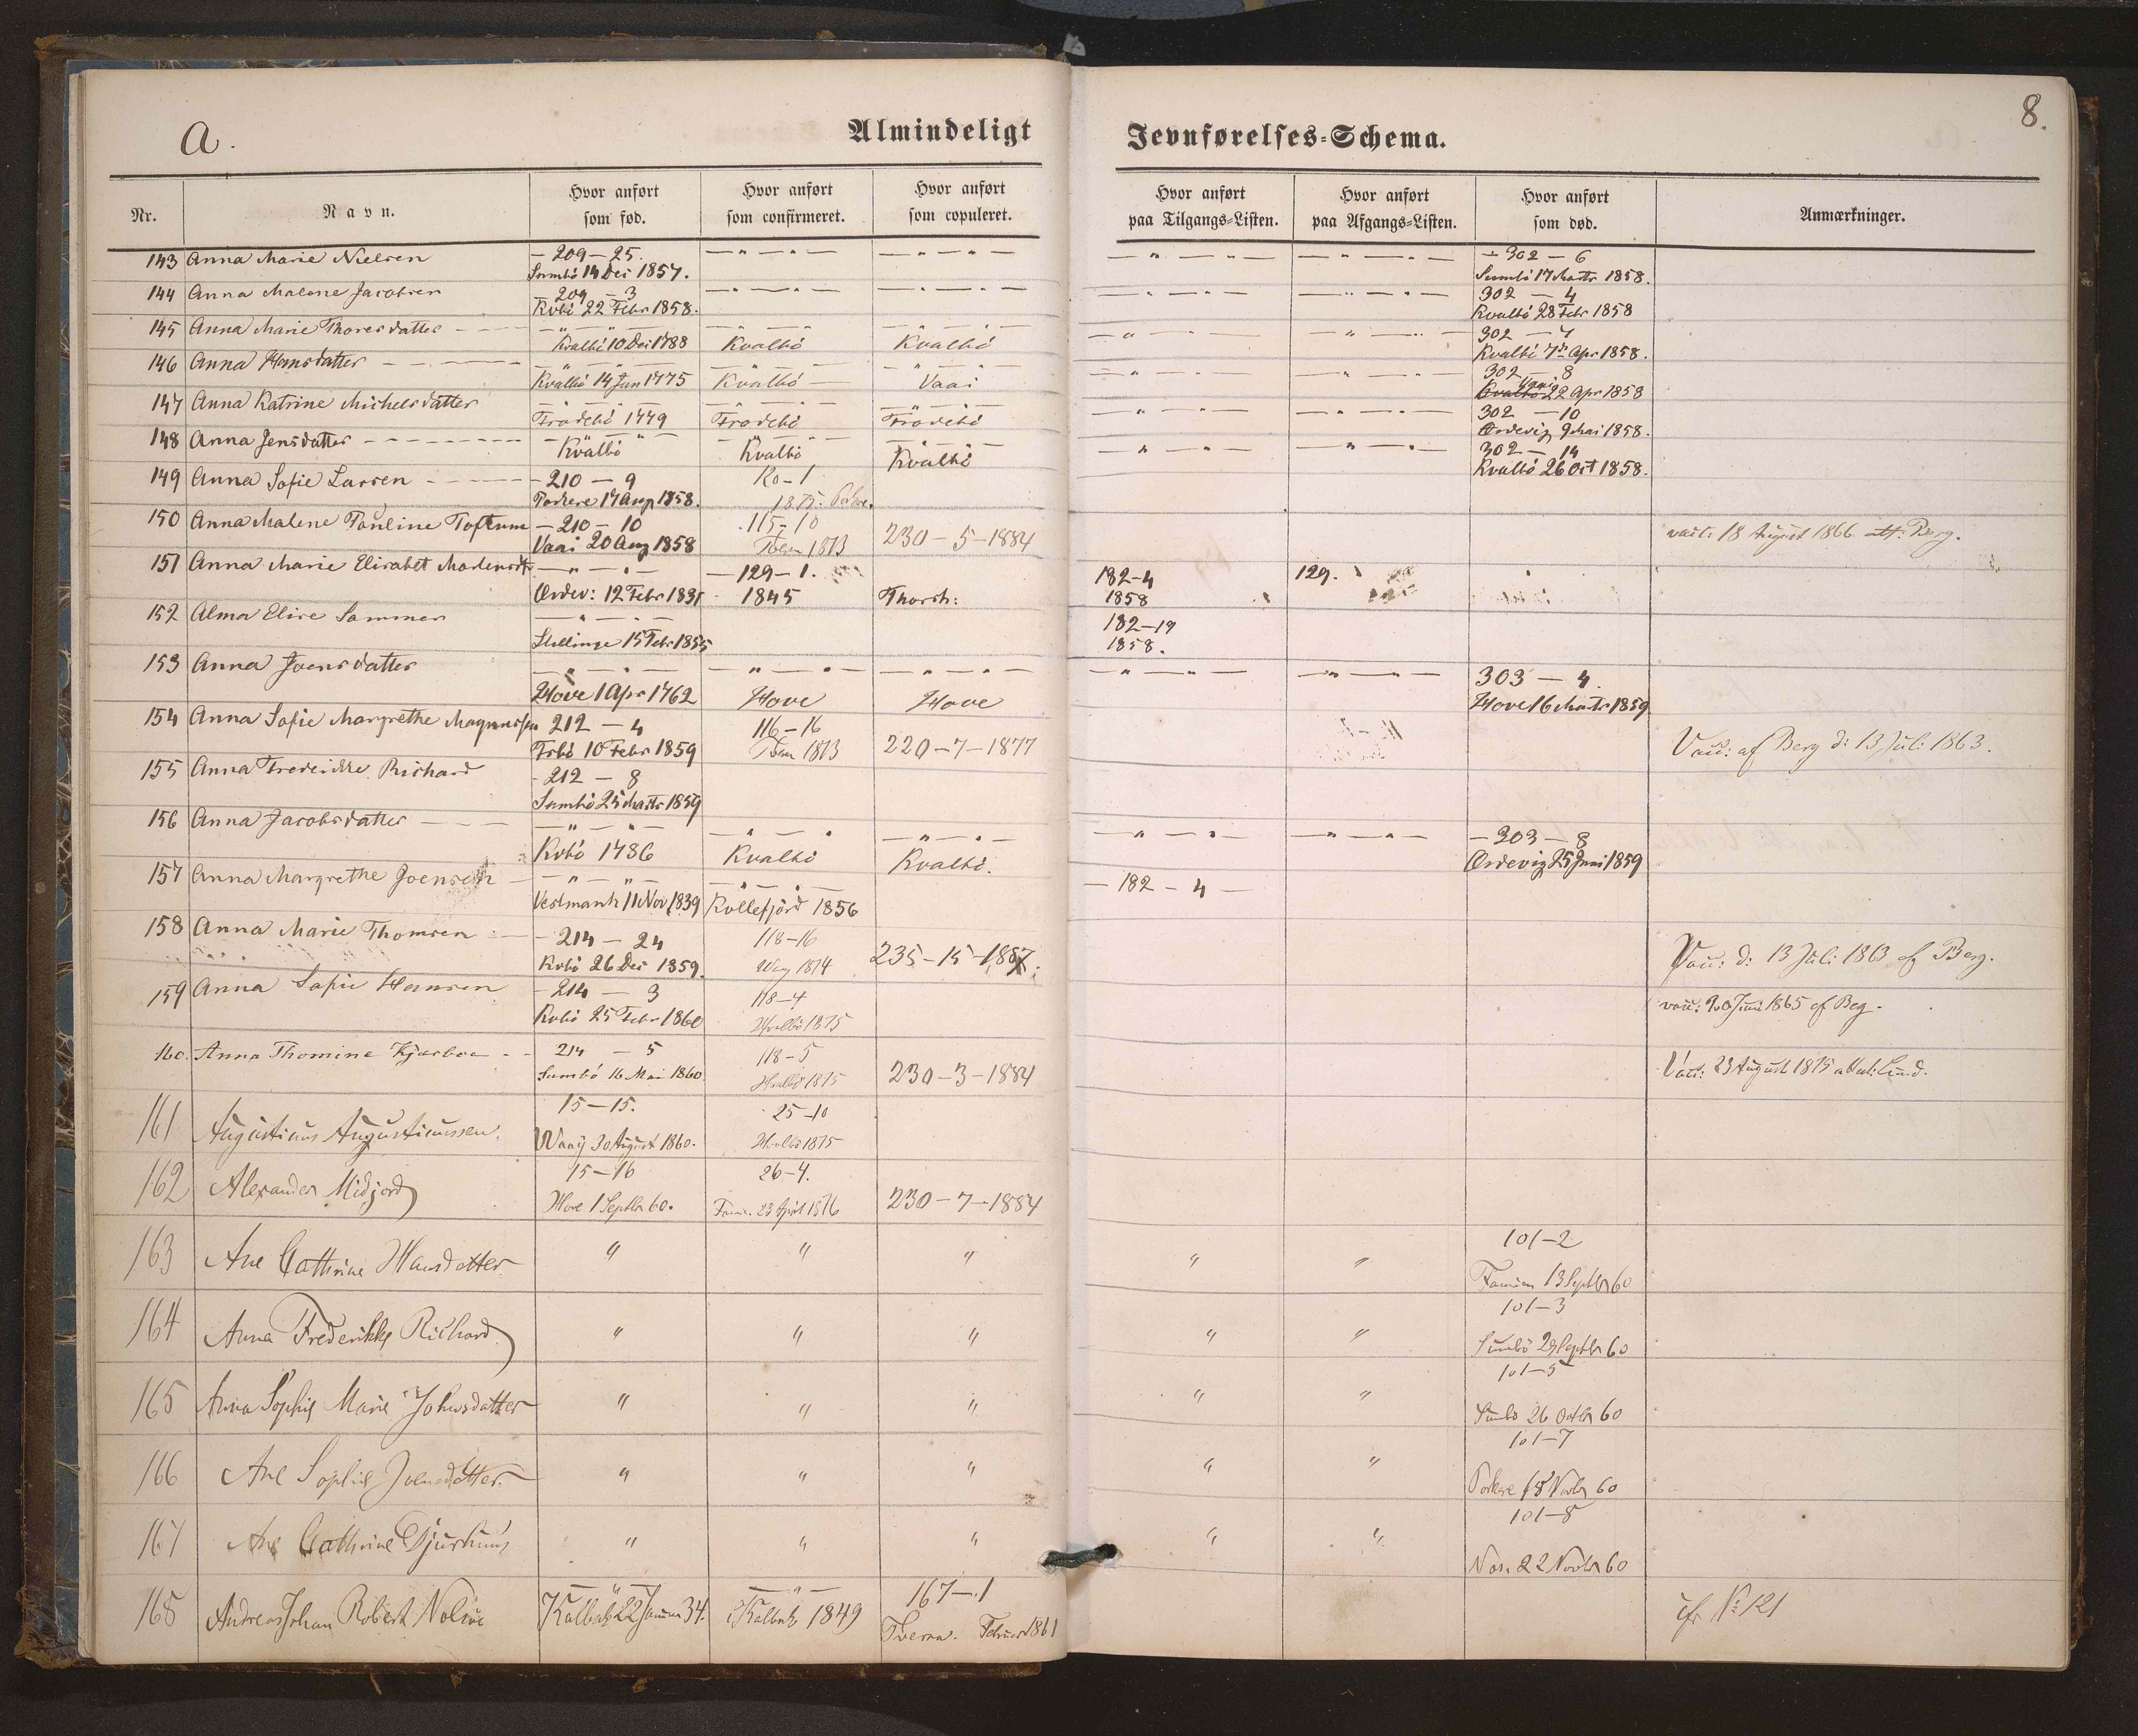 a.
Almindeligt
Jevnførelses-Schema.
8.
Nr.
Navn.
Hvor anført
som fød.
Hvor anført
som confirmeret.
Hvor anført
som copuleret.
Hvor anført
paa Tilgangs-Listen.
Hvor anført
paa Afgangs-Listen.
Hvor anført
som død.
Anmærkninger.
143 Anna Marie Nielsen — 209 — 25. — " — " — — " — " — — " — " — — 302 — 6
Sumbö 14 Dec 1857. Sumbö 17 Marts 1858.
144 Anna Malene Jacobsen — 209 — 3 — " — " — — " — " — — " — " — — " — " — 302 — 4
Kvbö 22 Febr 1858. Kvalbö 28 Febr 1858
145 Anna Marie Thoresdatter — " — " — — " — " — — " — " — — " — " — — " — " — 302 — 7
Kvalbö 10 Dec 1788 Kvalbö Kvalbö Kvalbö 7de Apr 1858.
146 Anna Hansdatter — " — " — — " — " — — " — " — — " — " — — " — " — 302 — 8
Kvalbö 14 Jan 1775 Kvalbö Vaai Vaai 22 Apr 1858
147 Anna Katrine Michelsdatter — " — " — — " — " — — " — " — — " — " — — " — " — 302 — 10
Frodebö 1779 Frodebö Frodebö Ordevig 9 Mai 1858.
148 Anna Jensdatter — " — " — — " — " — — " — " — — " — " — — " — " — 302 — 14
Kvalbö Kvalbö Kvalbö Kvalbö 26 Oct 1858.
149 Anna Sofie Larsen — 210 — 9
Porkere 17 Aug 1858. 1875.
150 Anna Malene Pauline Toftum — 210 — 10 115-10 230-5-1884 18 August 1866 Berg.
Vaai 20 Aug 1858 1873
151 Anna Marie Elisabet — " — " — — 129 — 1. 182-4 129.
Ordev: 12 Febr 1831 1845 Thorsh: 1858
152 Alma Elise Sommer — " — " — 182-19
15 Febr 1855 1858.
153 Anna Joensdatter — " — " — — " — " — — " — " — — " — " — — " — " — 303 — 4.
Hove 1 Apr 1762 Hove Hove Hove 16 Marts 1859
154 Anna Sofie Margrethe Magnussen 212 — 4 116-16 220-7-1877 Vacc: af Berg d: 13 Juli 1863.
10 Febr 1859 1873
155 Anna Frederikke Richard 212 — 8
Sumbö 25 Marts 1859
156 Anna Jacobsdatter — " — " — — " — " — — " — " — — " — " — — " — " — — 303 — 8
Kvbö 1786 Kvalbö Kvalbö. Ordevig 25 Juni 1859
157 Anna Margrethe Joensen — " — " — — " — " — — 182 — 4 —
Vestmanh 11 Nov 1839 Kollefjörd 1856
158 Anna Marie Thomsen — 214 — 24 118-16 235-15-1887. Vacc: d: 13 Juli 1863 af Berg.
Kvbö 26 Dec 1859. Waag 1874
159 Anna Sofie Hansen — 214 — 3 118-4 vacc: 20 Juni 1865 af Berg.
Kvbö 25 Febr 1860 Hvalbö 1875
160. Anna Thomine Kjærboe 214 — 5 118-5 230-3-1884 Vacc: 23 August 1875 Lund.
Sumbö 16 Mai 1860. Hvalbö 1875
161 Augustinus Augustinussen. 15-15. 25-10
Waaij 30 August 1860. Hvalbö 1875
162 Alexander Midjord 15-16 26-4. 230-7-1884
Hove 1 Septbr 60. 23 April 1876
163 Ane Cathrine Hansdatter " " " " " 101-2
Famien 13 Septbr 60
164 Anna Frederikke Richard " " " " " 101-3
Sumbö 29 Septbr 60
165 Anna Sophie Marie Johnsdatter " " " " " 101-5
Sumbö 26 Octbr 60
166 Ane Sophie Joensdatter. " " " " " 101-7
Porkere 18 Novbr 60
167 Ane Cathrine Djurhuus " " " " " 101-8
Næs. 22 Novbr 60
168 Andreas Johan Robert Nolsöe — " — — " — 167-1 cfr No 121
Kalbak 22 Januar 34. Kalbak 1849 Tveraa. Februar 1861